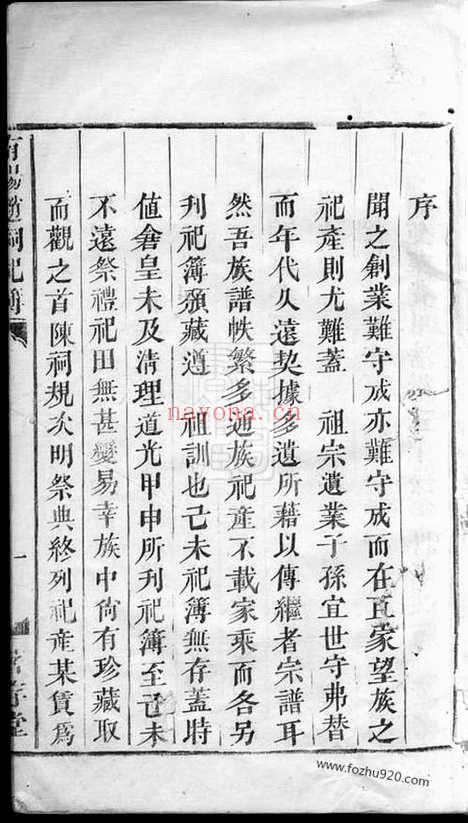 序
聞之創業難守成亦難守成而在巨家望族之
祀產則尤難蓋 祖宗遺業子孫宜世守弗替
而年代久遠契據多遺所藉以傳繼者宗譜耳
然吾族譜帙繁多通族祀產不載家乘而各另
刋祀簿頒藏遵 祖訓也己未祀簿無存蓋時
值倉皇未及清理道光甲申所刋祀簿至己未
不遠祭禮祀田無甚變易幸族中尙有珍藏取
而觀之首陳祠規次明祭典終列祀產某賃爲
祠祀簿
一
堂
nayona.cn
www.fozhu920.com